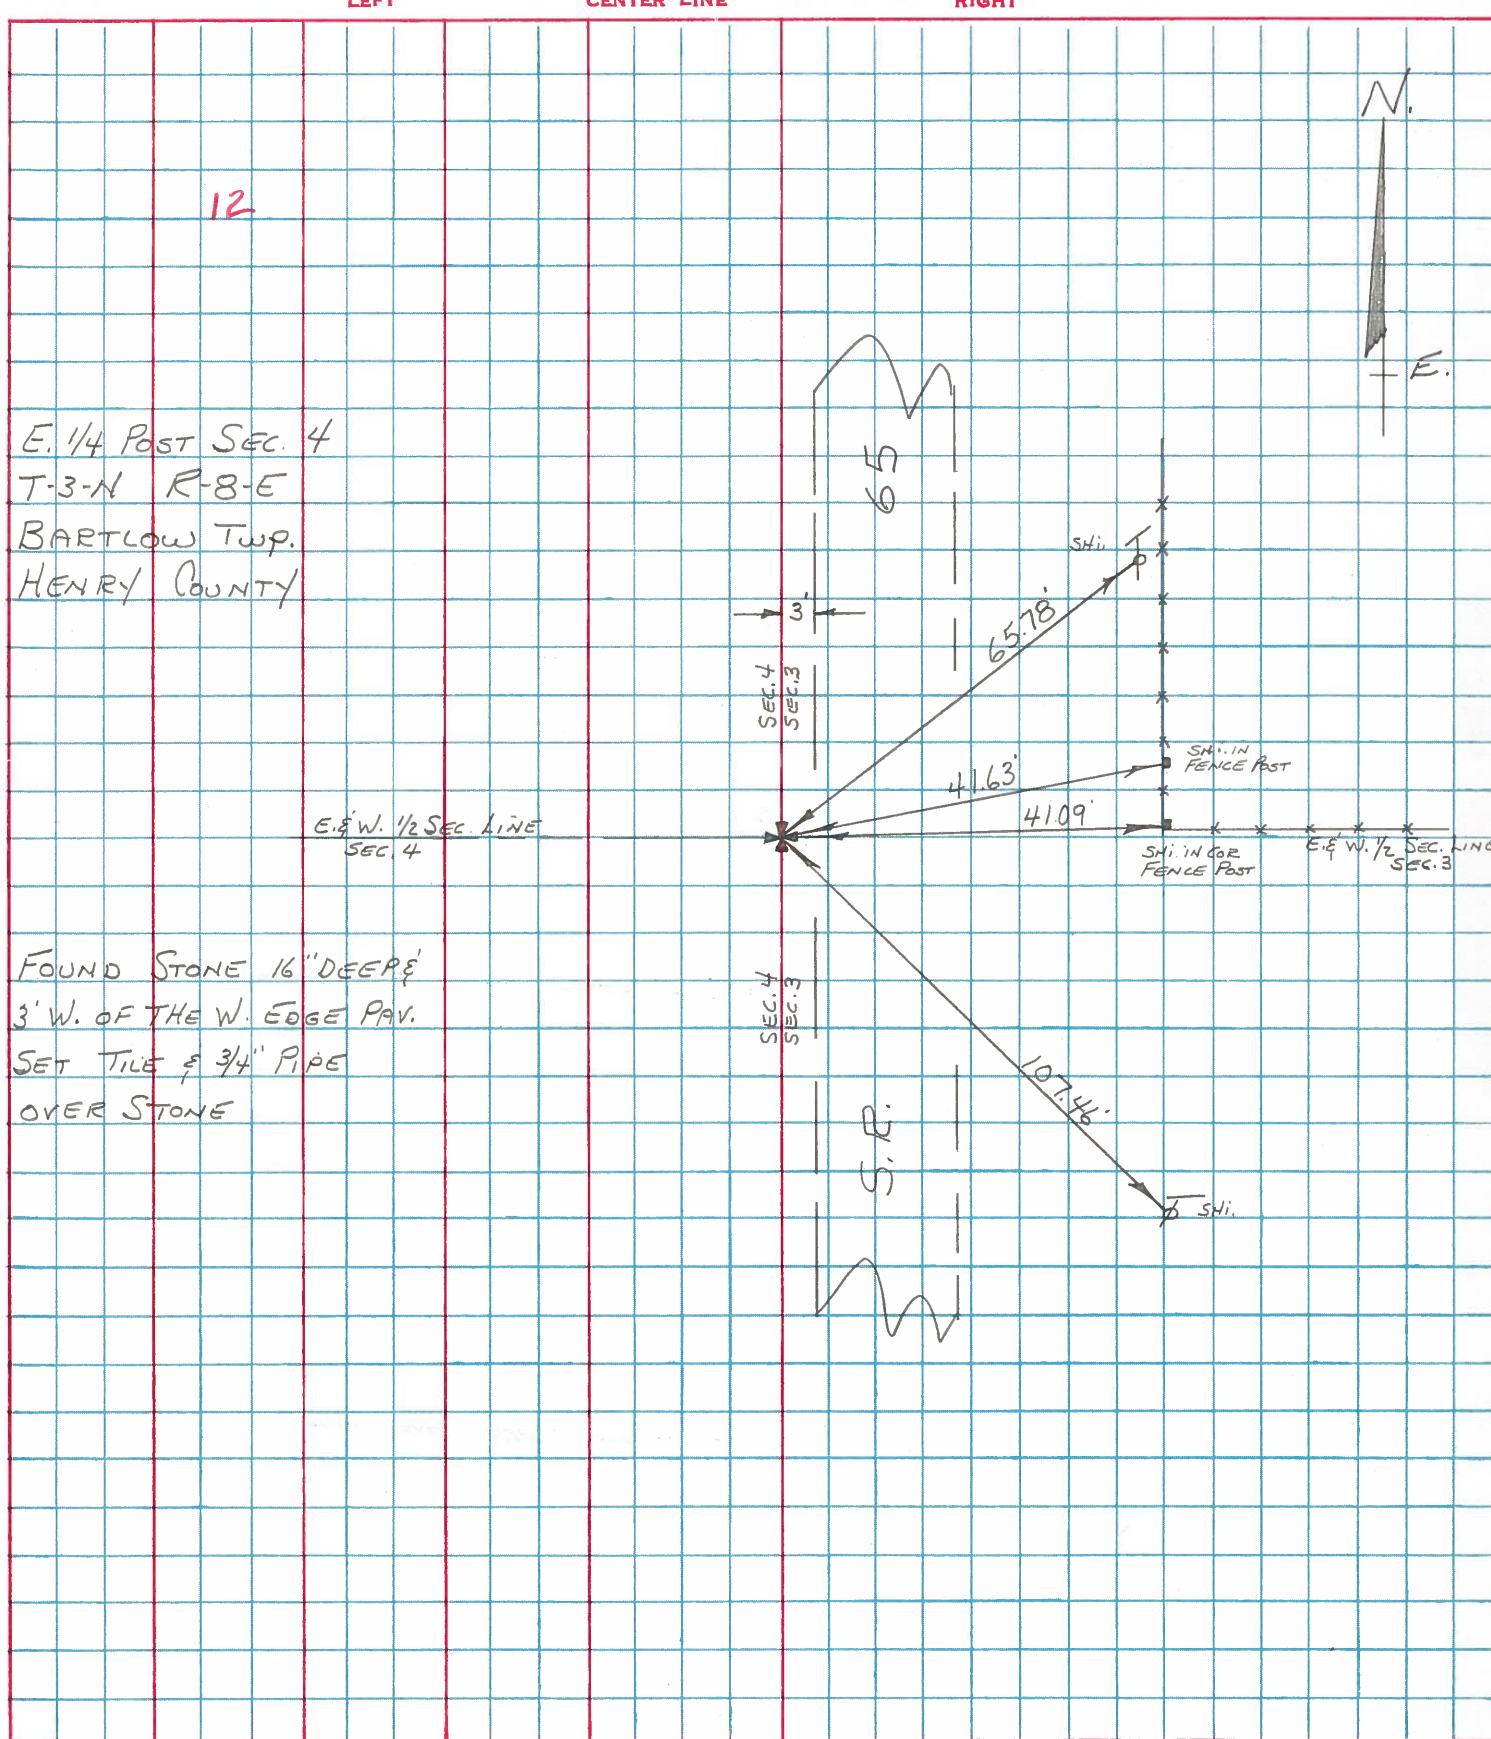 LEFT CENTER LINE RIGHT
N.
12
E.
E. 1/4 POST SEC. 4
T-3-N R-8-E
BARTLOW TWP.
HENRY COUNTY
65
SHi.
3'
65.78'
SEC. 4
SEC. 3
SHi. IN
FENCE POST
41.63'
41.09'
E. & W. 1/2 SEC. LINE
SEC. 4
SHi. IN COR
FENCE POST
E. & W. 1/2 SEC. LINE
SEC. 3
FOUND STONE 16" DEEP &
3' W. OF THE W. EDGE PAV.
SET TILE & 3/4" PIPE
OVER STONE
SEC. 4
SEC. 3
107.46'
S.R.
SHi.